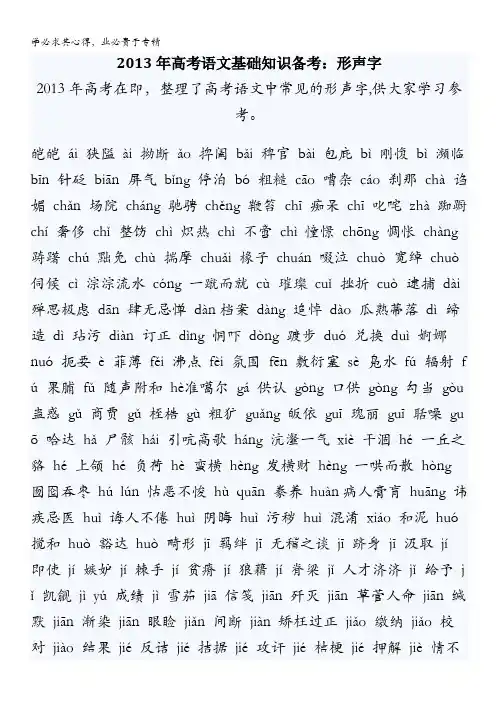 学必求其心得，业必贵于专精
2013年高考语文基础知识备考：形声字
2013年高考在即，整理了高考语文中常见的形声字,供大家学习参
考。
皑皑 ái 狭隘 ài 拗断 ǎo 捭阖 bǎi 稗官 bài 包庇 bì 刚愎 bì 濒临
bīn 针砭 biān 屏气 bǐng 停泊 bó 粗糙 cāo 嘈杂 cáo 刹那 chà 谄
媚 chǎn 场院 cháng 驰骋 chěng 鞭笞 chī 痴呆 chī 叱咤 zhà 踟蹰
chí 奢侈 chǐ 整饬 chì 炽热 chì 不啻 chì 憧憬 chōng 惆怅 chàng
踌躇 chú 黜免 chù 揣摩 chuǎi 椽子 chuán 啜泣 chuò 宽绰 chuò
伺候 cì 淙淙流水 cóng 一蹴而就 cù 璀璨 cuǐ 挫折 cuò 逮捕 dài
殚思极虑 dān 肆无忌惮 dàn 档案 dàng 追悼 dào 瓜熟蒂落 dì 缔
造 dì 玷污 diàn 订正 dìng 恫吓 dòng 踱步 duó 兑换 duì 婀娜
nuó 扼要 è 菲薄 fěi 沸点 fèi 氛围 fēn 敷衍塞 sè 凫水 fú 辐射 f
ú 果脯 fǔ 随声附和 hè 准噶尔 gá 供认 gòng 口供 gòng 勾当 gòu
蛊惑 gǔ 商贾 gǔ 桎梏 gù 粗犷 guǎng 皈依 guī 瑰丽 guī 聒噪 gu
ō 哈达 hǎ 尸骸 hái 引吭高歌 háng 沆瀣一气 xiè 干涸 hé 一丘之
貉 hé 上颌 hé 负荷 hè 蛮横 hèng 发横财 hèng 一哄而散 hòng
囫囵吞枣 hú lún 怙恶不悛 hù quān 豢养 huàn 病人膏肓 huāng 讳
疾忌医 huì 诲人不倦 huì 阴晦 huì 污秽 huì 混淆 xiáo 和泥 huó
搅和 huò 豁达 huò 畸形 jī 羁绊 jī 无稽之谈 jī 跻身 jī 汲取 jí
即使 jí 嫉妒 jí 棘手 jí 贫瘠 jí 狼藉 jí 脊梁 jǐ 人才济济 jǐ 给予 j
ǐ 觊觎 jì yú 成绩 jì 雪茄 jiā 信笺 jiān 歼灭 jiān 草菅人命 jiān 缄
默 jiān 渐染 jiān 眼睑 jiǎn 间断 jiàn 矫枉过正 jiǎo 缴纳 jiǎo 校
对 jiào 结果 jié 反诘 jié 拮据 jié 攻讦 jié 桔梗 jié 押解 jiè 情不